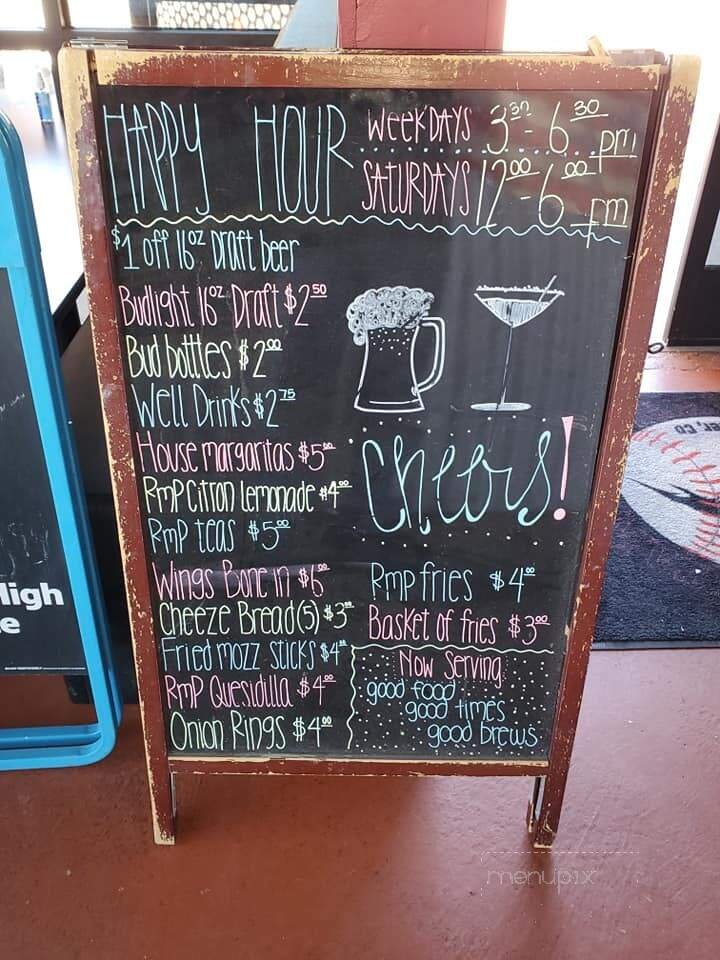 HAPPY HOUR
WEEKDAYS 3³⁰ - 6³⁰ pm
SATURDAYS 12⁰⁰ - 6⁰⁰ pm
$1 off 16oz Draft beer
Budlight 16oz Draft $2⁵⁰
Bud bottles $2⁰⁰
Well Drinks $2⁷⁵
House margaritas $5⁰⁰
RmP Citron Lemonade $4⁰⁰
RmP teas $5⁰⁰
Cheers!
Wings Bone in $6⁰⁰
Cheeze Bread(5) $3⁰⁰
Fried mozz sticks $4⁰⁰
RmP Quesidilla $4⁰⁰
Onion Rings $4⁰⁰
Rmp fries $4⁰⁰
Basket of fries $3⁰⁰
Now Serving
good food
good times
good brews
menupix